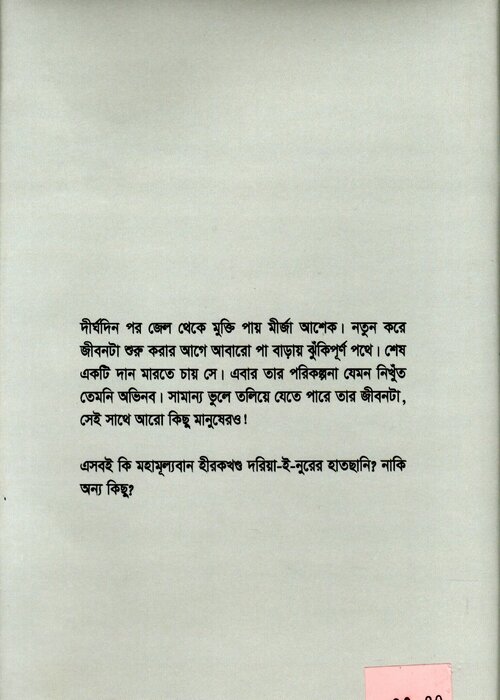 দীর্ঘদিন পর জেল থেকে মুক্তি পায় মীর্জা আশেক। নতুন করে
জীবনটা শুরু করার আগে আবারো পা বাড়ায় ঝুঁকিপূর্ণ পথে। শেষ
একটি দান মারতে চায় সে। এবার তার পরিকল্পনা যেমন নিখুঁত
তেমনি অভিনব। সামান্য ভুলে তলিয়ে যেতে পারে তার জীবনটা,
সেই সাথে আরো কিছু মানুষেরও!
এসবই কি মহামূল্যবান হীরকখণ্ড দরিয়া-ই-নুরের হাতছানি? নাকি
অন্য কিছু?